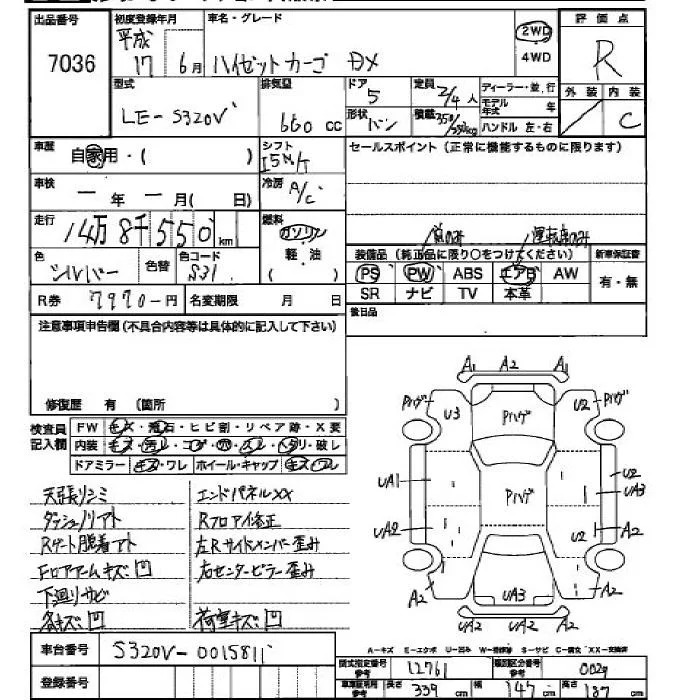 出品番号 7036
初度登録年月 平成 17 6月
車名・グレード ハイゼットカーゴ DX
2WD
4WD
評価点 R
外装 内装 C
型式 LE-S320V
排気量 660 cc
ドア 5
形状 バン
定員 2/4 人
積載 350/350kg
ディーラー・並行
モデル年式 年
ハンドル 左・右
車歴 自家用・( )
シフト
冷房 A/C
セールスポイント (正常に機能するものに限ります)
車検 年 月( 日)
走行 14万8千550 km
燃料 ガソリン
軽・油
( )
運転席のみ
色 シルバー 色替 色コード S31
装備品 (純正品に限り○をつけてください)
新車保証書
有・無
PS PW ABS エアB AW
SR ナビ TV 本革
R券 7970-円 名変期限 月 日
後日品
注意事項申告欄(不具合内容等は具体的に記入して下さい)
修復歴 有 (箇所 )
検査員記入欄
FW キズ・飛石・ヒビ割・リペア跡・X要
内装 キズ・汚レ・コゲ・穴・スレ・ヘタリ・破レ
ドアミラー キズ・ワレ ホイール・キャップ キズ・ワレ
天張リシミ エンドパネルXX
ダッシュノリアト Rフロアイ修正
Rゲート脱着アト 左Rサイドメンバー歪み
Fロアアームキズ凹 右センターピラー歪み
下廻リサビ
各キズ凹 荷室キズ凹
A1 A2 A1
Pハゲ U3 Pハゲ U2 Pハゲ
UA1 Pハゲ U2 UA3
UA2 U2 A2
A2 UA3 A2
UA2 UA2 A2
A-キズ E-エクボ U-凹ミ W-補修跡 S-サビ C-腐食 XX-交換済
車台番号 S320V-0015811
登録番号
型式指定番号 参考 12761
類別区分番号 参考 0029
車庫証明用 参考 長さ 339 cm 幅 147 cm 高さ 187 cm